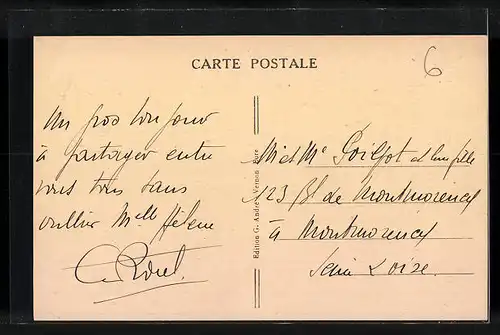 CARTE POSTALE
6
Un gros bonjour
à partager entre
vous tous sans
oublier Melle Hélène
Edition G. André, Vernon, Eure
M et Me et leur fille
123 Bd de Montmorency
à Montmorency
Seine & Oise.